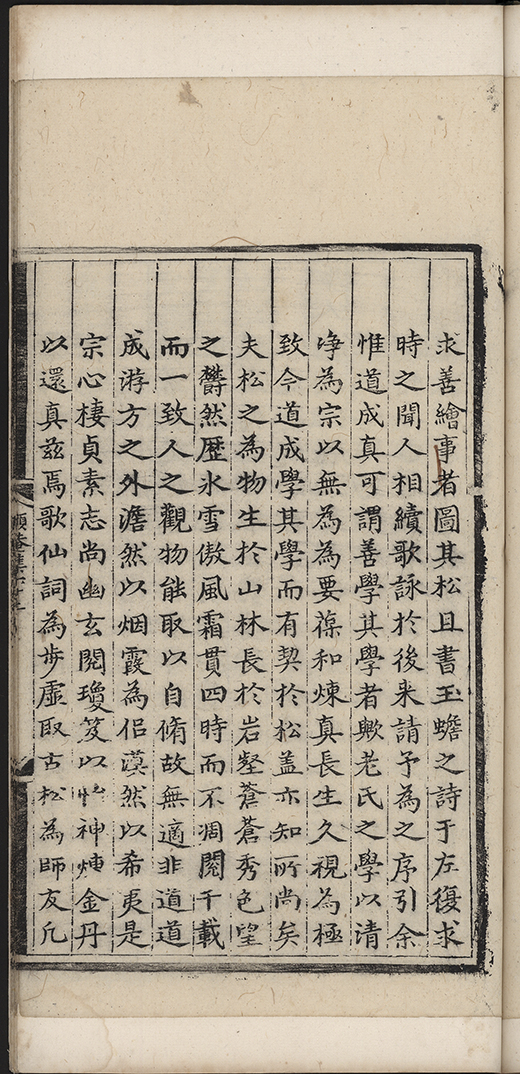 求善繪事者圖其松且書玉蟾之詩于左復求
時之聞人相續歌詠於後来請予為之序引余
惟道成真可謂善學其學者歟老氏之學以清
净為宗以無為為要葆和煉真長生久視為極
致今道成學其學而有契於松盖亦知所尚矣
夫松之為物生於山林長於岩壑蒼蒼秀色望
之欝然歴氷雪傲風霜貫四時而不凋閱千載
而一致人之觀物能取以自脩故無適非道道
成游方之外澹然以烟霞為侣漠然以希夷是
宗心棲貞素志尚幽玄閱瓊笈以怡神煉金丹
以還真兹焉歌仙詞為步虛取古松為師友凡
頤菴集